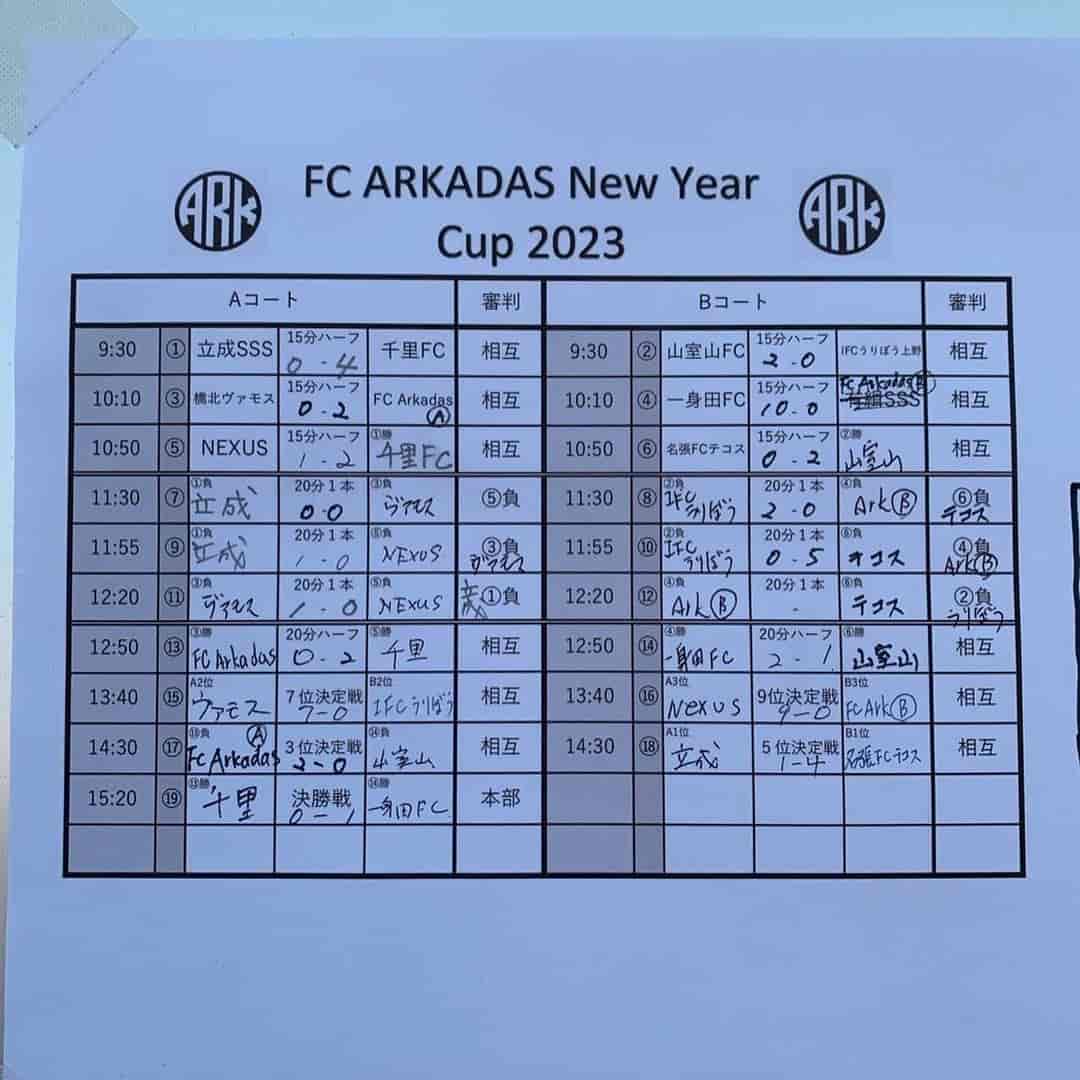 ARK
FC ARKADAS New Year
Cup 2023
ARK
Aコート 審判 Bコート 審判
9:30 ① 立成SSS 15分ハーフ 0 - 4 千里FC 相互 9:30 ② 山室山FC 15分ハーフ 2 - 0 IFCうりぼう上野 相互
10:10 ③ 橋北ヴァモス 15分ハーフ 0 - 2 FC Arkadas Ⓐ 相互 10:10 ④ 一身田FC 15分ハーフ 10 - 0 FC Arkadas Ⓑ SSS 相互
10:50 ⑤ NEXUS 15分ハーフ 1 - 2 ①勝 千里FC 相互 10:50 ⑥ 名張FCテコス 15分ハーフ 0 - 2 ②勝 山室山 相互
11:30 ⑦ ①負 立成 20分1本 0-0 ③負 ヴァモス ⑤負 11:30 ⑧ ②負 IFCうりぼう 20分1本 2 - 0 ④負 Ark Ⓑ ⑥負 テコス
11:55 ⑨ ①負 立成 20分1本 1 - 0 ⑤負 NEXUS ③負 ヴァモス 11:55 ⑩ ②負 IFCうりぼう 20分1本 0 - 5 ⑥負 テコス ④負 Ark Ⓑ
12:20 ⑪ ③負 ヴァモス 20分1本 1 - 0 ⑤負 NEXUS 立成 ①負 12:20 ⑫ ④負 Ark Ⓑ 20分1本 - ⑥負 テコス ②負 うりぼう
12:50 ⑬ ③勝 FC Arkadas 20分ハーフ 0 - 2 ⑤勝 千里 相互 12:50 ⑭ ④勝 一身田FC 20分ハーフ 2 - 1 ⑥勝 山室山 相互
13:40 ⑮ A2位 ヴァモス 7位決定戦 7-0 B2位 IFCうりぼう 相互 13:40 ⑯ A3位 NEXUS 9位決定戦 9-0 B3位 FC Ark Ⓑ 相互
14:30 ⑰ ⑬負 FC Arkadas Ⓐ 3位決定戦 2-0 ⑭負 山室山 相互 14:30 ⑱ A1位 立成 5位決定戦 1-4 B1位 名張FCテコス 相互
15:20 ⑲ ⑬勝 千里 決勝戦 0 - 1 ⑭勝 一身田FC 本部